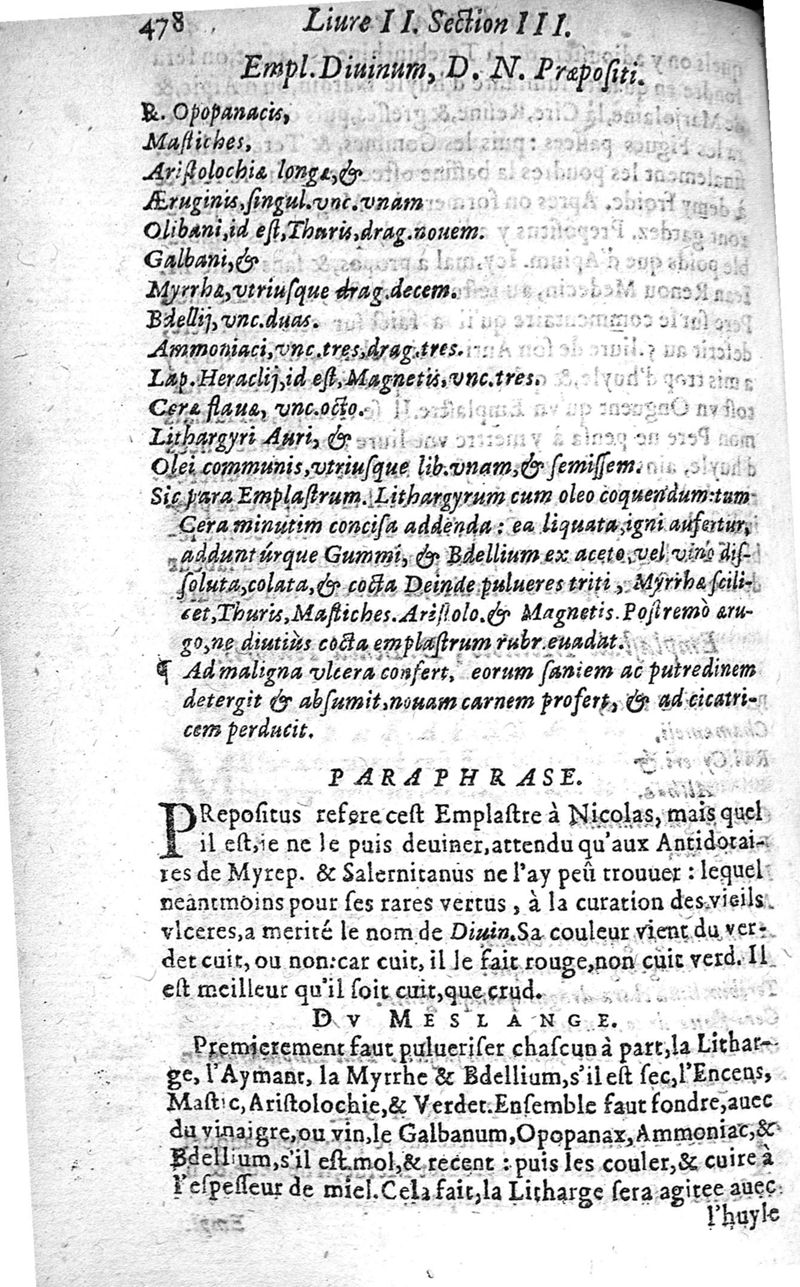 478 Liure II. Section III.
Empl. Diuinum, D. N. Præpositi.
℞. Opopanacis,
Mastiches,
Aristolochiæ longæ, &
Æruginis, singul. vnc. vnam
Olibani, id est, Thuris, drag. nouem.
Galbani, &
Myrrhæ, vtriusque drag. decem.
Bdellij, vnc. duas.
Ammoniaci, vnc. tres, drag. tres.
Lap. Heraclij, id est, Magnetis, vnc. tres.
Ceræ flauæ, vnc. octo.
Lithargyri Auri, &
Olei communis, vtriusque lib. vnam, & semissem.
Sic para Emplastrum. Lithargyrum cum oleo coquendum: tum
Cera minutim concisa addenda: ea liquata, igni aufertur,
adduntúrque Gummi, & Bdellium ex aceto, vel vino dis-
soluta, colata, & cocta Deinde pulueres triti, Myrrhæ scili-
cet, Thuris, Mastiches. Aristolo. & Magnetis. Postremò æru-
go, ne diutiùs cocta emplastrum rubr. euadat.
¶ Ad maligna vlcera confert, eorum saniem ac putredinem
detergit & absumit, nouam carnem profert, & ad cicatri-
cem perducit.
PARAPHRASE.
PRepositus refere cest Emplastre à Nicolas, mais quel
il est, ie ne le puis deuiner, attendu qu'aux Antidotai-
res de Myrep. & Salernitanus ne l'ay peû trouuer: lequel
neàntmoins pour ses rares vertus, à la curation des vieils
vlceres, a merité le nom de Diuin. Sa couleur vient du ver-
det cuit, ou non: car cuit, il le fait rouge, non cuit verd. Il
est meilleur qu'il soit cuit, que crud.
DV MESLANGE.
Premierement faut puluerifer chascun à part, la Lithar-
ge, l'Aymant, la Myrrhe & Bdellium, s'il est sec, l'Encens,
Mastic, Aristolochie, & Verdet. Ensemble faut fondre, auec
du vinaigre, ou vin, le Galbanum, Opopanax, Ammoniac, &
Bdellium, s'il est mol, & recent: puis les couler, & cuire à
l'espesseur de miel. Cela fait, la Litharge sera agitee auec
l'huyle